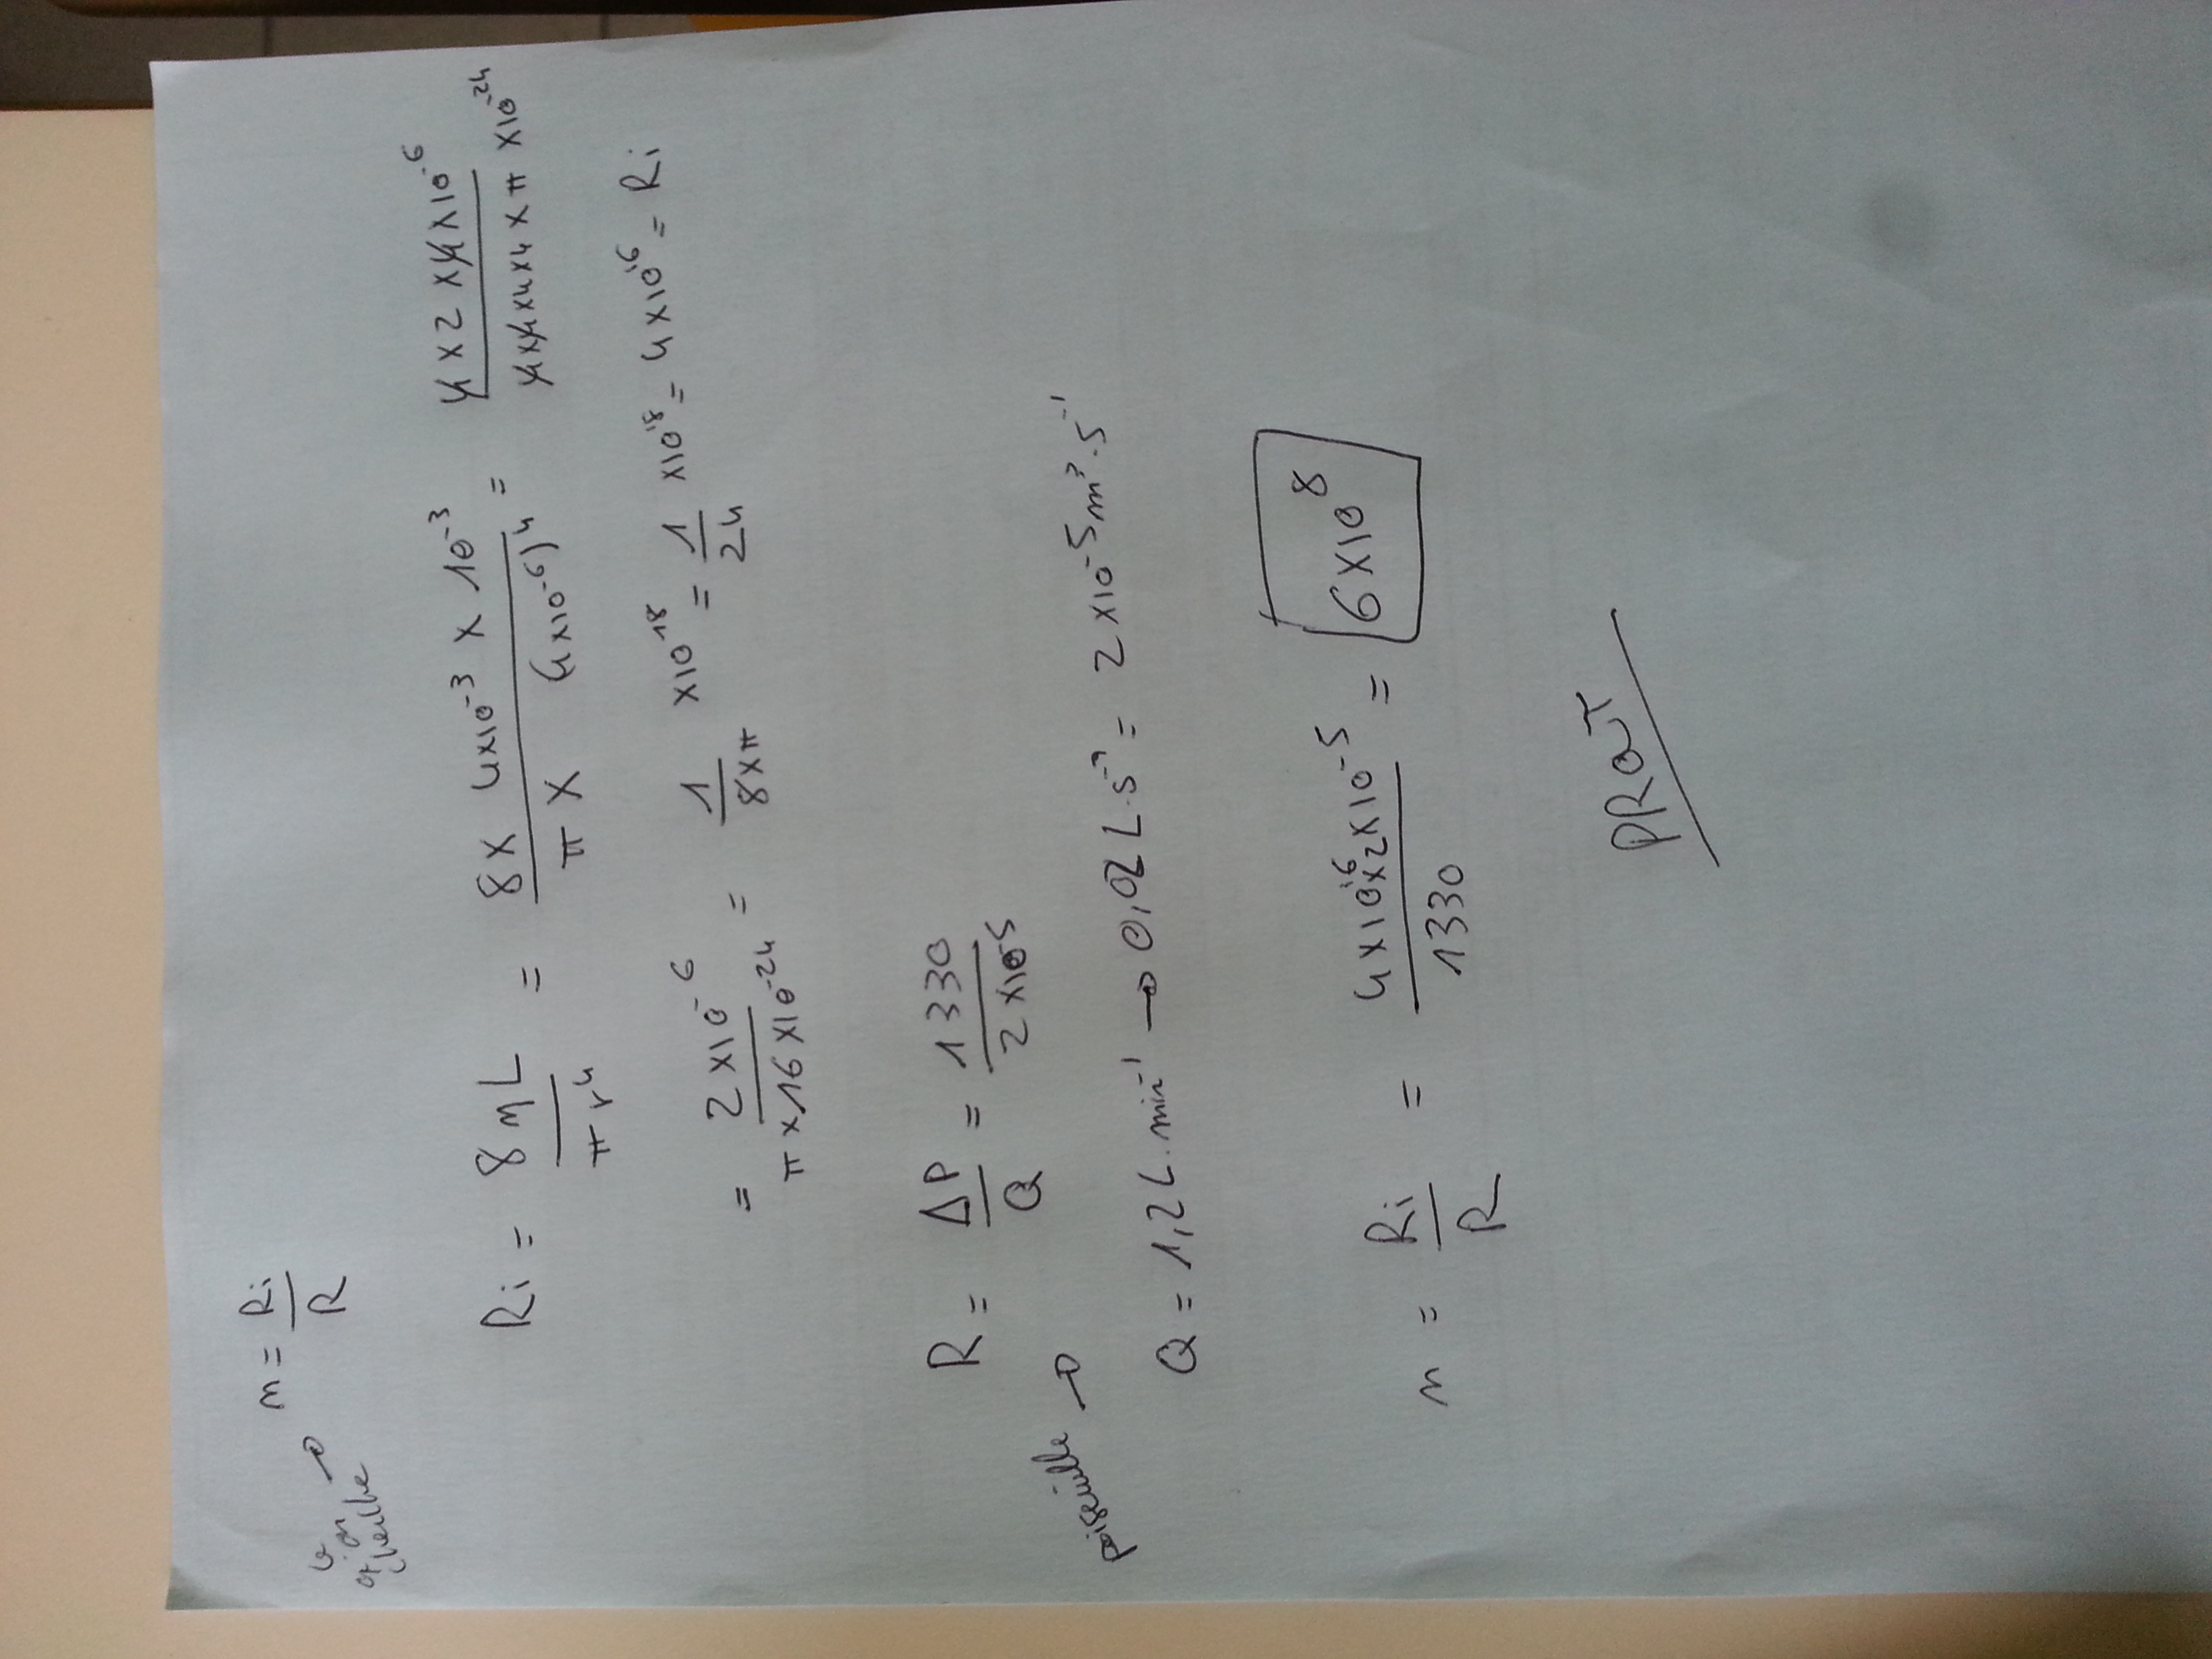 n = Ri/R
on
cherche →
Ri = 8ηL/πr⁴ = 8 × 4×10⁻³ × 10⁻³ / π × (4×10⁻⁶)⁴ = 4 × 2 × 4 × 10⁻⁶ / 4×4×4×4 × π ×10⁻²⁴
= 2×10⁻⁶ / π×16×10⁻²⁴ = 1/8×π ×10¹⁸ = 1/24 ×10¹⁸ = 4×10¹⁶ = Ri
R = ΔP/Q = 1330 / 2×10⁻⁵
poiseuille →
Q = 1,2 L.min⁻¹ → 0,02 L.s⁻¹ = 2×10⁻⁵ m³.s⁻¹
n = Ri/R = 4×10¹⁶×2×10⁻⁵ / 1330 = 6×10⁸
PROUT